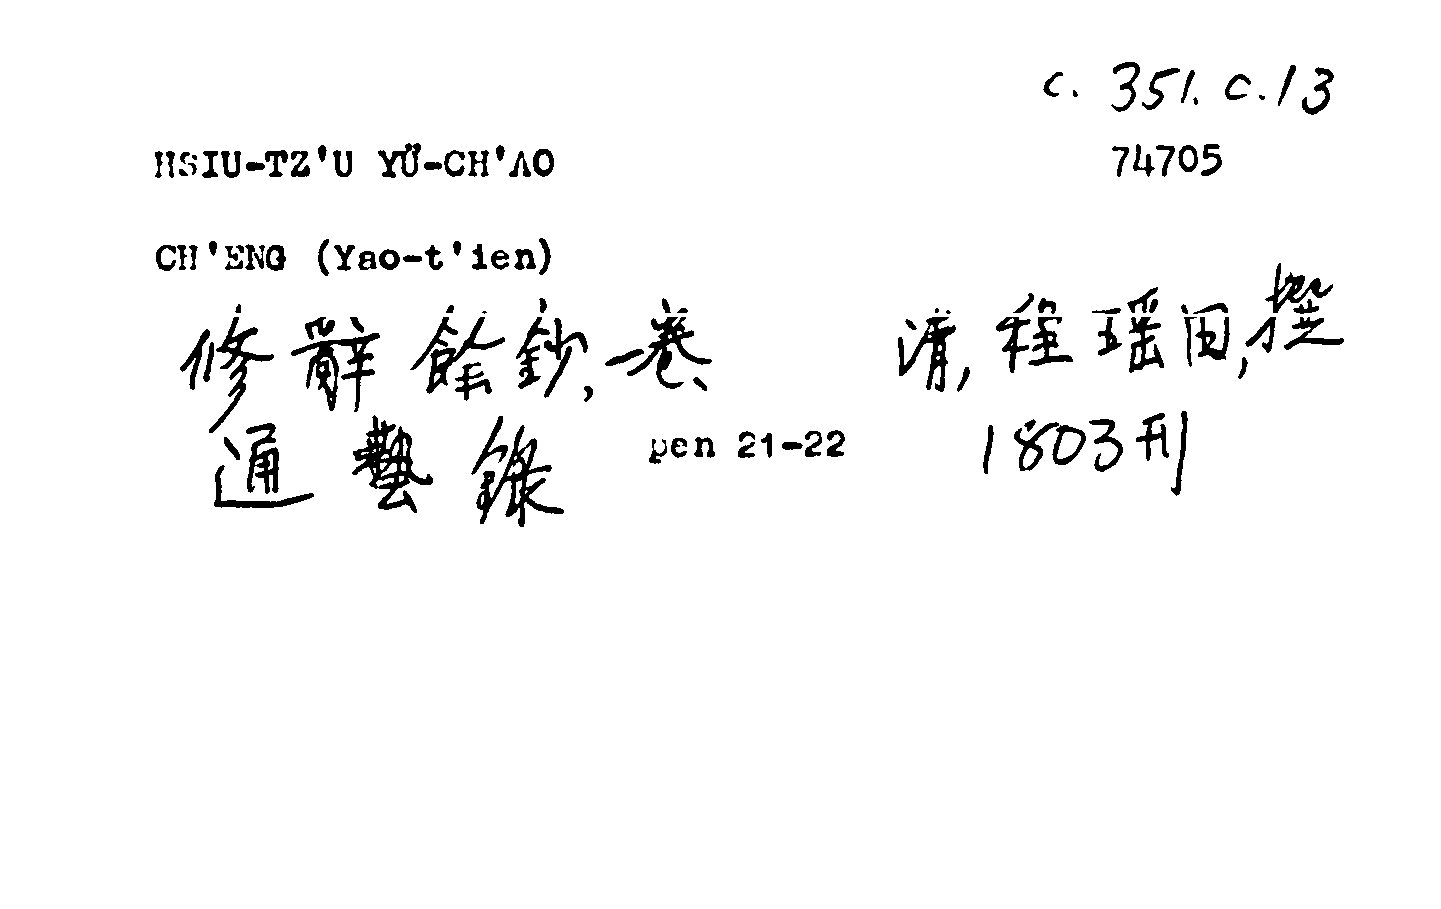 c. 351. c.13
HSIU-TZ'U YÜ-CH'AO 74705
CH'ENG (Yao-t'ien)
修辭餘鈔, 一卷、 清, 程瑤田, 撰
通藝錄 pen 21-22 1803刊